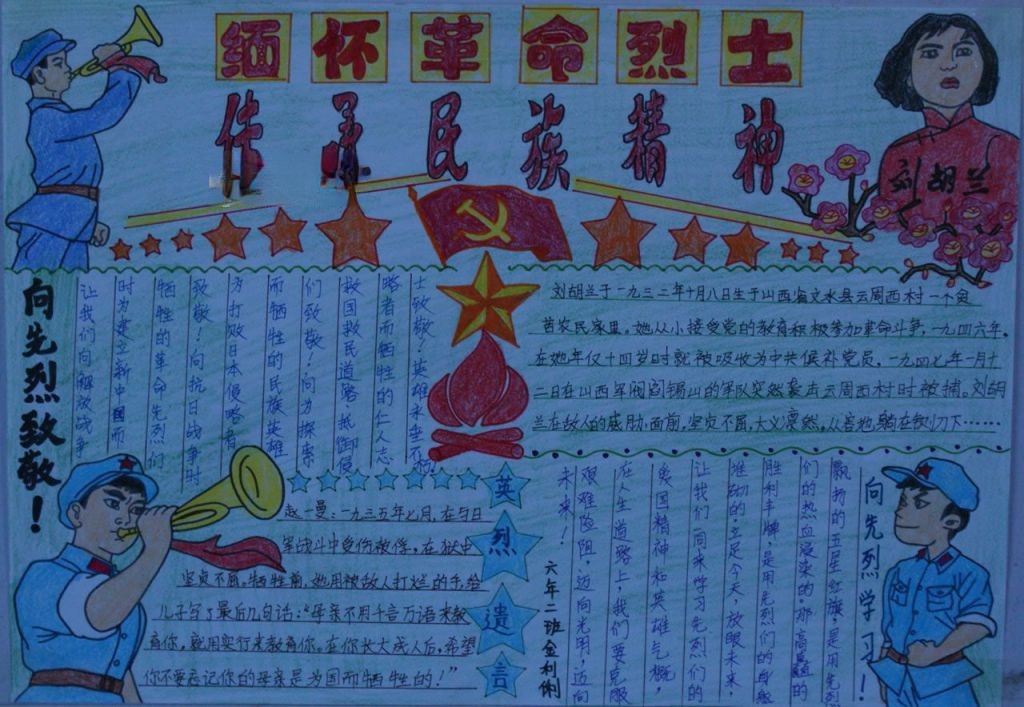 缅怀革命烈士
传承民族精神
刘胡兰
向先烈致敬！
让我们向解放战争
时为建立新中国而
牺牲的革命先烈们
致敬！向抗日战争时
为打败日本侵略者
而牺牲的民族英雄
们致敬！向为探索
救国救民道路、抵御侵
略者而牺牲的仁人志
士致敬！英雄永垂不朽
刘胡兰于一九三二年十月八日生于山西省文水县云周西村一个贫
苦农民家里。她从小接受党的教育积极参加革命斗争，一九四六年，
在她年仅十四岁时就被吸收为中共候补党员，一九四七年一月十
二日在山西军阀阎锡山的军队突然袭击云周西村时被捕。刘胡
兰在敌人的威胁面前，坚贞不屈，大义凛然，从容地躺在铡刀下……
英烈遗言
赵一曼：一九三五年七月，在与日
军战斗中受伤被俘。在狱中
坚贞不屈。牺牲前，她用被敌人打烂的手给
儿子写了最后几句话：“母亲不用千言万语来教
育你，就用实行来教育你。在你长大成人后，希望
你不要忘记你的母亲是为国而牺牲的！”
六年二班金利俐
飘扬的五星红旗，是用先烈
们的热血浸染的，那高矗的
胜利丰碑，是用先烈们的身躯
堆砌的，立足今天，放眼未来，
让我们一同来学习先烈们的
爱国精神和英雄气概，
在人生道路上，我们要克服
艰难险阻，迈向光明，迈向
未来！
向先烈学习！